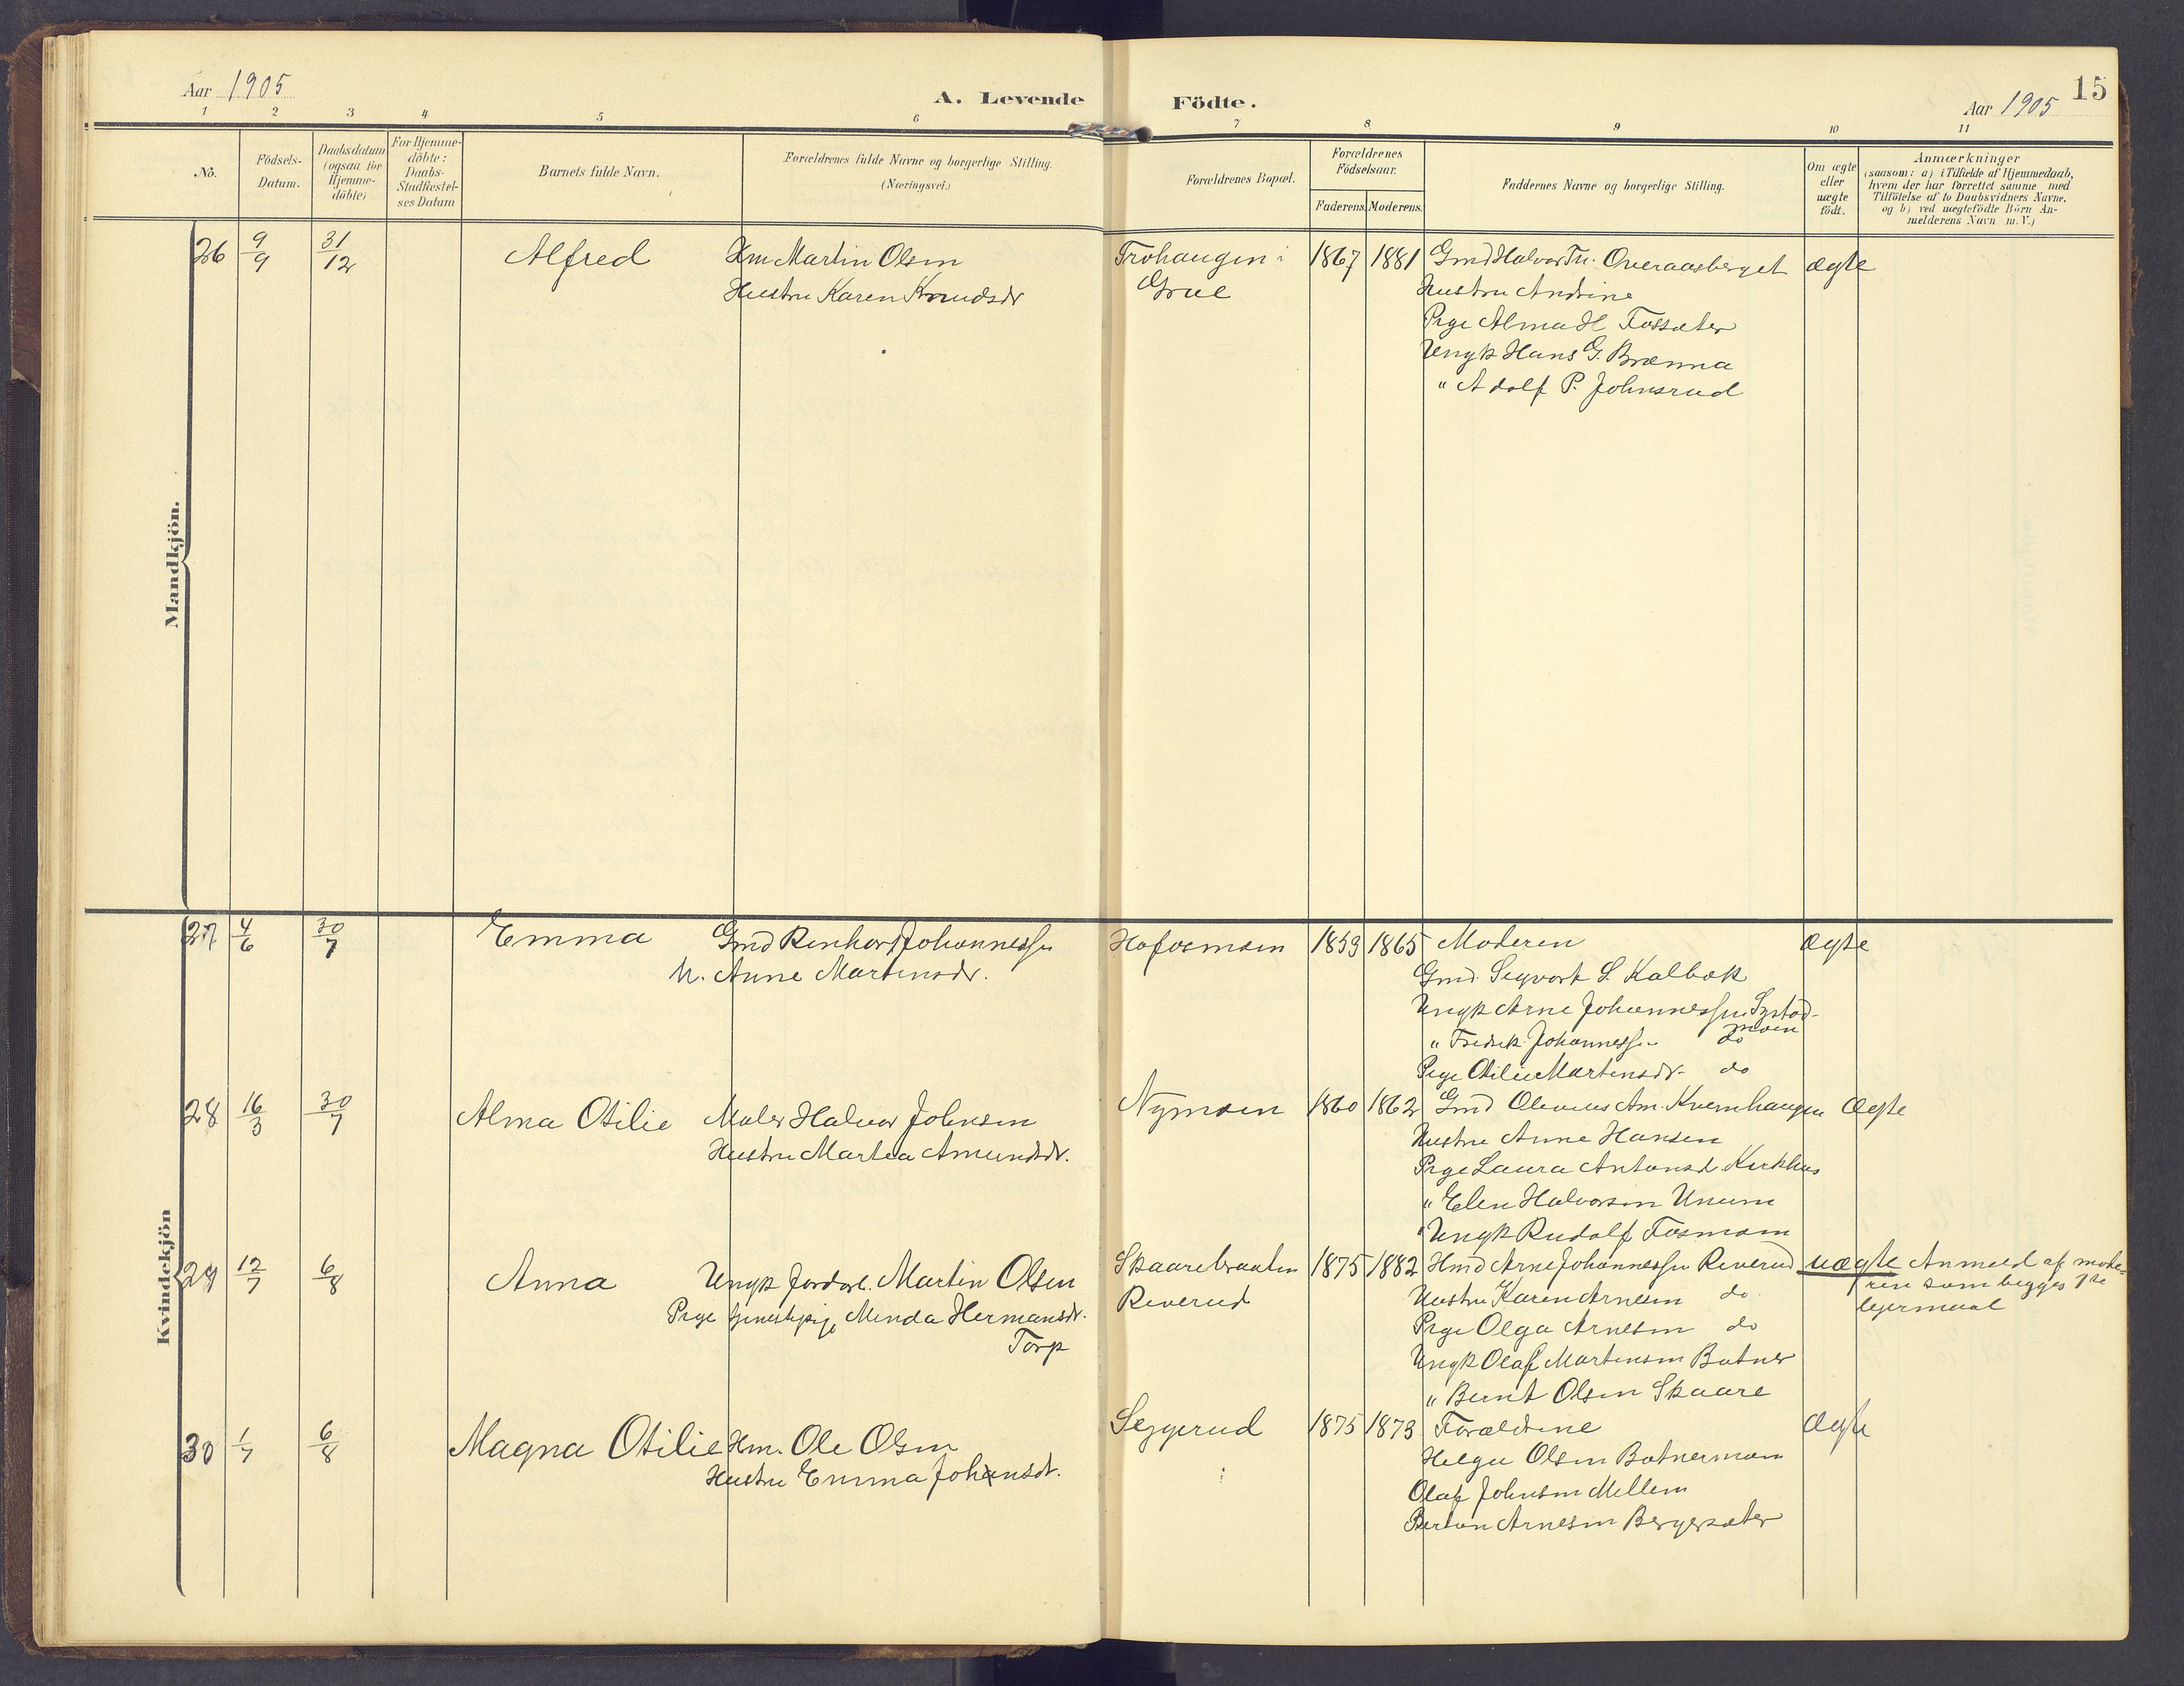 Aar 1905
A. Levende Födte.
Aar 1905
15
1 2 3 4 5 6 7 8 9 10 11
No.
Födsels-
Datum.
Daabsdatum
(ogsaa for
Hjemme-
döbte)
For Hjemme-
döbte:
Daabs-
Stadfæstel-
ses Datum
Barnets fulde Navn.
Forældrenes fulde Navne og borgerlige Stilling.
(Næringsvei.)
Forældrenes Bopæl.
Forældrenes
Födselsaar.
Faderens. Moderens.
Faddernes Navne og borgerlige Stilling.
Om ægte
eller
uægte
födt.
Anmærkninger
(saasom: a) i Tilfælde af Hjemmedaab,
hvem der har forrettet samme med
Tilföielse af to Daabsvidners Navne.
og b) ved uægtefödte Börn An-
melderens Navn m. V.)
Mandkjön.
26 9/9 31/12 Alfred
Hm Martin Olsen
Hustru Karen Knudsdr
Trohaugen i
Grue
1867 1881
Gmd Halvor Tr. Overaasberget
Hustru Andrine
Pige Alma H Fossæter
Ungk Hans G. Brænna
" Adolf P. Johnsrud
ægte
Kvindekjön
27 4/6 30/7 Emma
Gmd Renhart Johannessen
H. Anne Martinsdr.
Hofosmoen
1859 1865
Moderen
Gmd. Segvart S. Kalbæk
Ungk Arne Johannessen Systad-
moen
" Fredrik Johannessen do
Pige Otilie Martinsdr. do
ægte
28 16/3 30/7 Alma Otilie
Maler Halvor Johnsen
Hustru Martea Amundsdr.
Nymoen
1860 1862
Gmd Olevius Am. Kvernhaugen
Hustru Anne Hansen
Pige Laura Antonsd Kirkhus
" Elen Halvorsen Unum
" Ungk Rudolf Fosmoen
Ægte
29 12/7 6/8 Anna
Ungk Jordarb. Martin Olsen
Pige tjenestepige Minda Hermansdr.
Torp
Skaarebraaten
Reverud
1875 1882
Hmd Arne Johannessen Reverud
Hustru Karen Arnesen do
Pige Olga Arnesen do
Ungk Olaf Martinsen Botner
" Bernt Olsen Skaare
uægte Anmeld af mode-
ren som begges 1ste
lejermaal
30 1/7 6/8 Magna Otilie
Hm. Ole Olsen
Hustru Emma Johansdr.
Seggerud
1875 1873
Forældrene
Helga Olsen Botnermoen
Olaf Johnsen Mellem
Berton Arnesen Bergersæter
Ægte